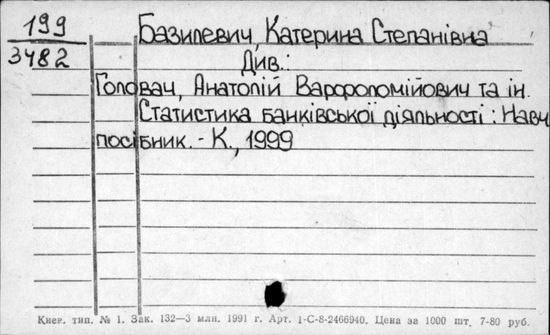 199
3482
Базилевич, Катерина Степанівна
Див.:
Головач, Анатолій Варфоломійович та ін.
Статистика банківської діяльності : Навч.
посібник. - К., 1999
Киев. тип. № 1. Зак. 132—3 млн. 1991 г. Арт. 1-С-8-2466940. Цена за 1000 шт. 7-80 руб.